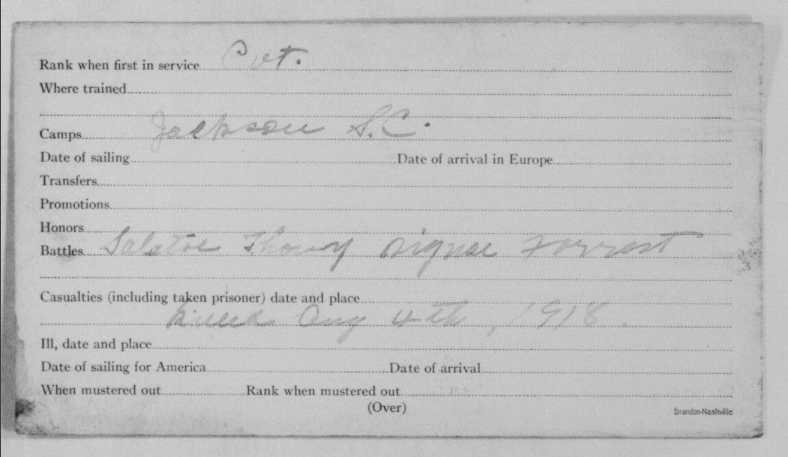 Rank when first in service Pvt.
Where trained
Camps Jackson S.C.
Date of sailing Date of arrival in Europe
Transfers
Promotions
Honors
Battles Forrest
Casualties (including taken prisoner) date and place
Killed Aug 4th, 1918.
Ill, date and place
Date of sailing for America Date of arrival
When mustered out Rank when mustered out
(Over)
Brandon-Nashville